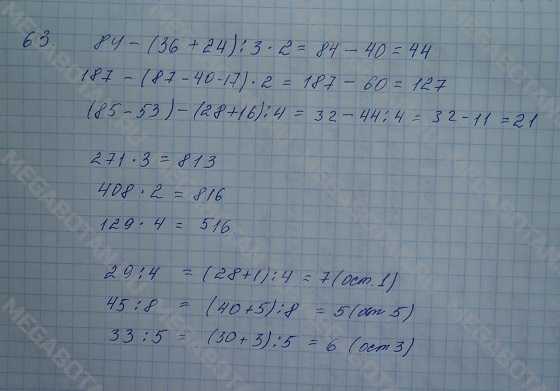 63 84 - (36 + 24) : 3 · 2 = 84 - 40 = 44
187 - (87 - 40 - 17) · 2 = 187 - 60 = 127
(85 - 53) - (28 + 16) : 4 = 32 - 44 : 4 = 32 - 11 = 21
271 · 3 = 813
408 · 2 = 816
129 · 4 = 516
29 : 4 = (28 + 1) : 4 = 7 (ост. 1)
45 : 8 = (40 + 5) : 8 = 5 (ост 5)
33 : 5 = (30 + 3) : 5 = 6 (ост 3)